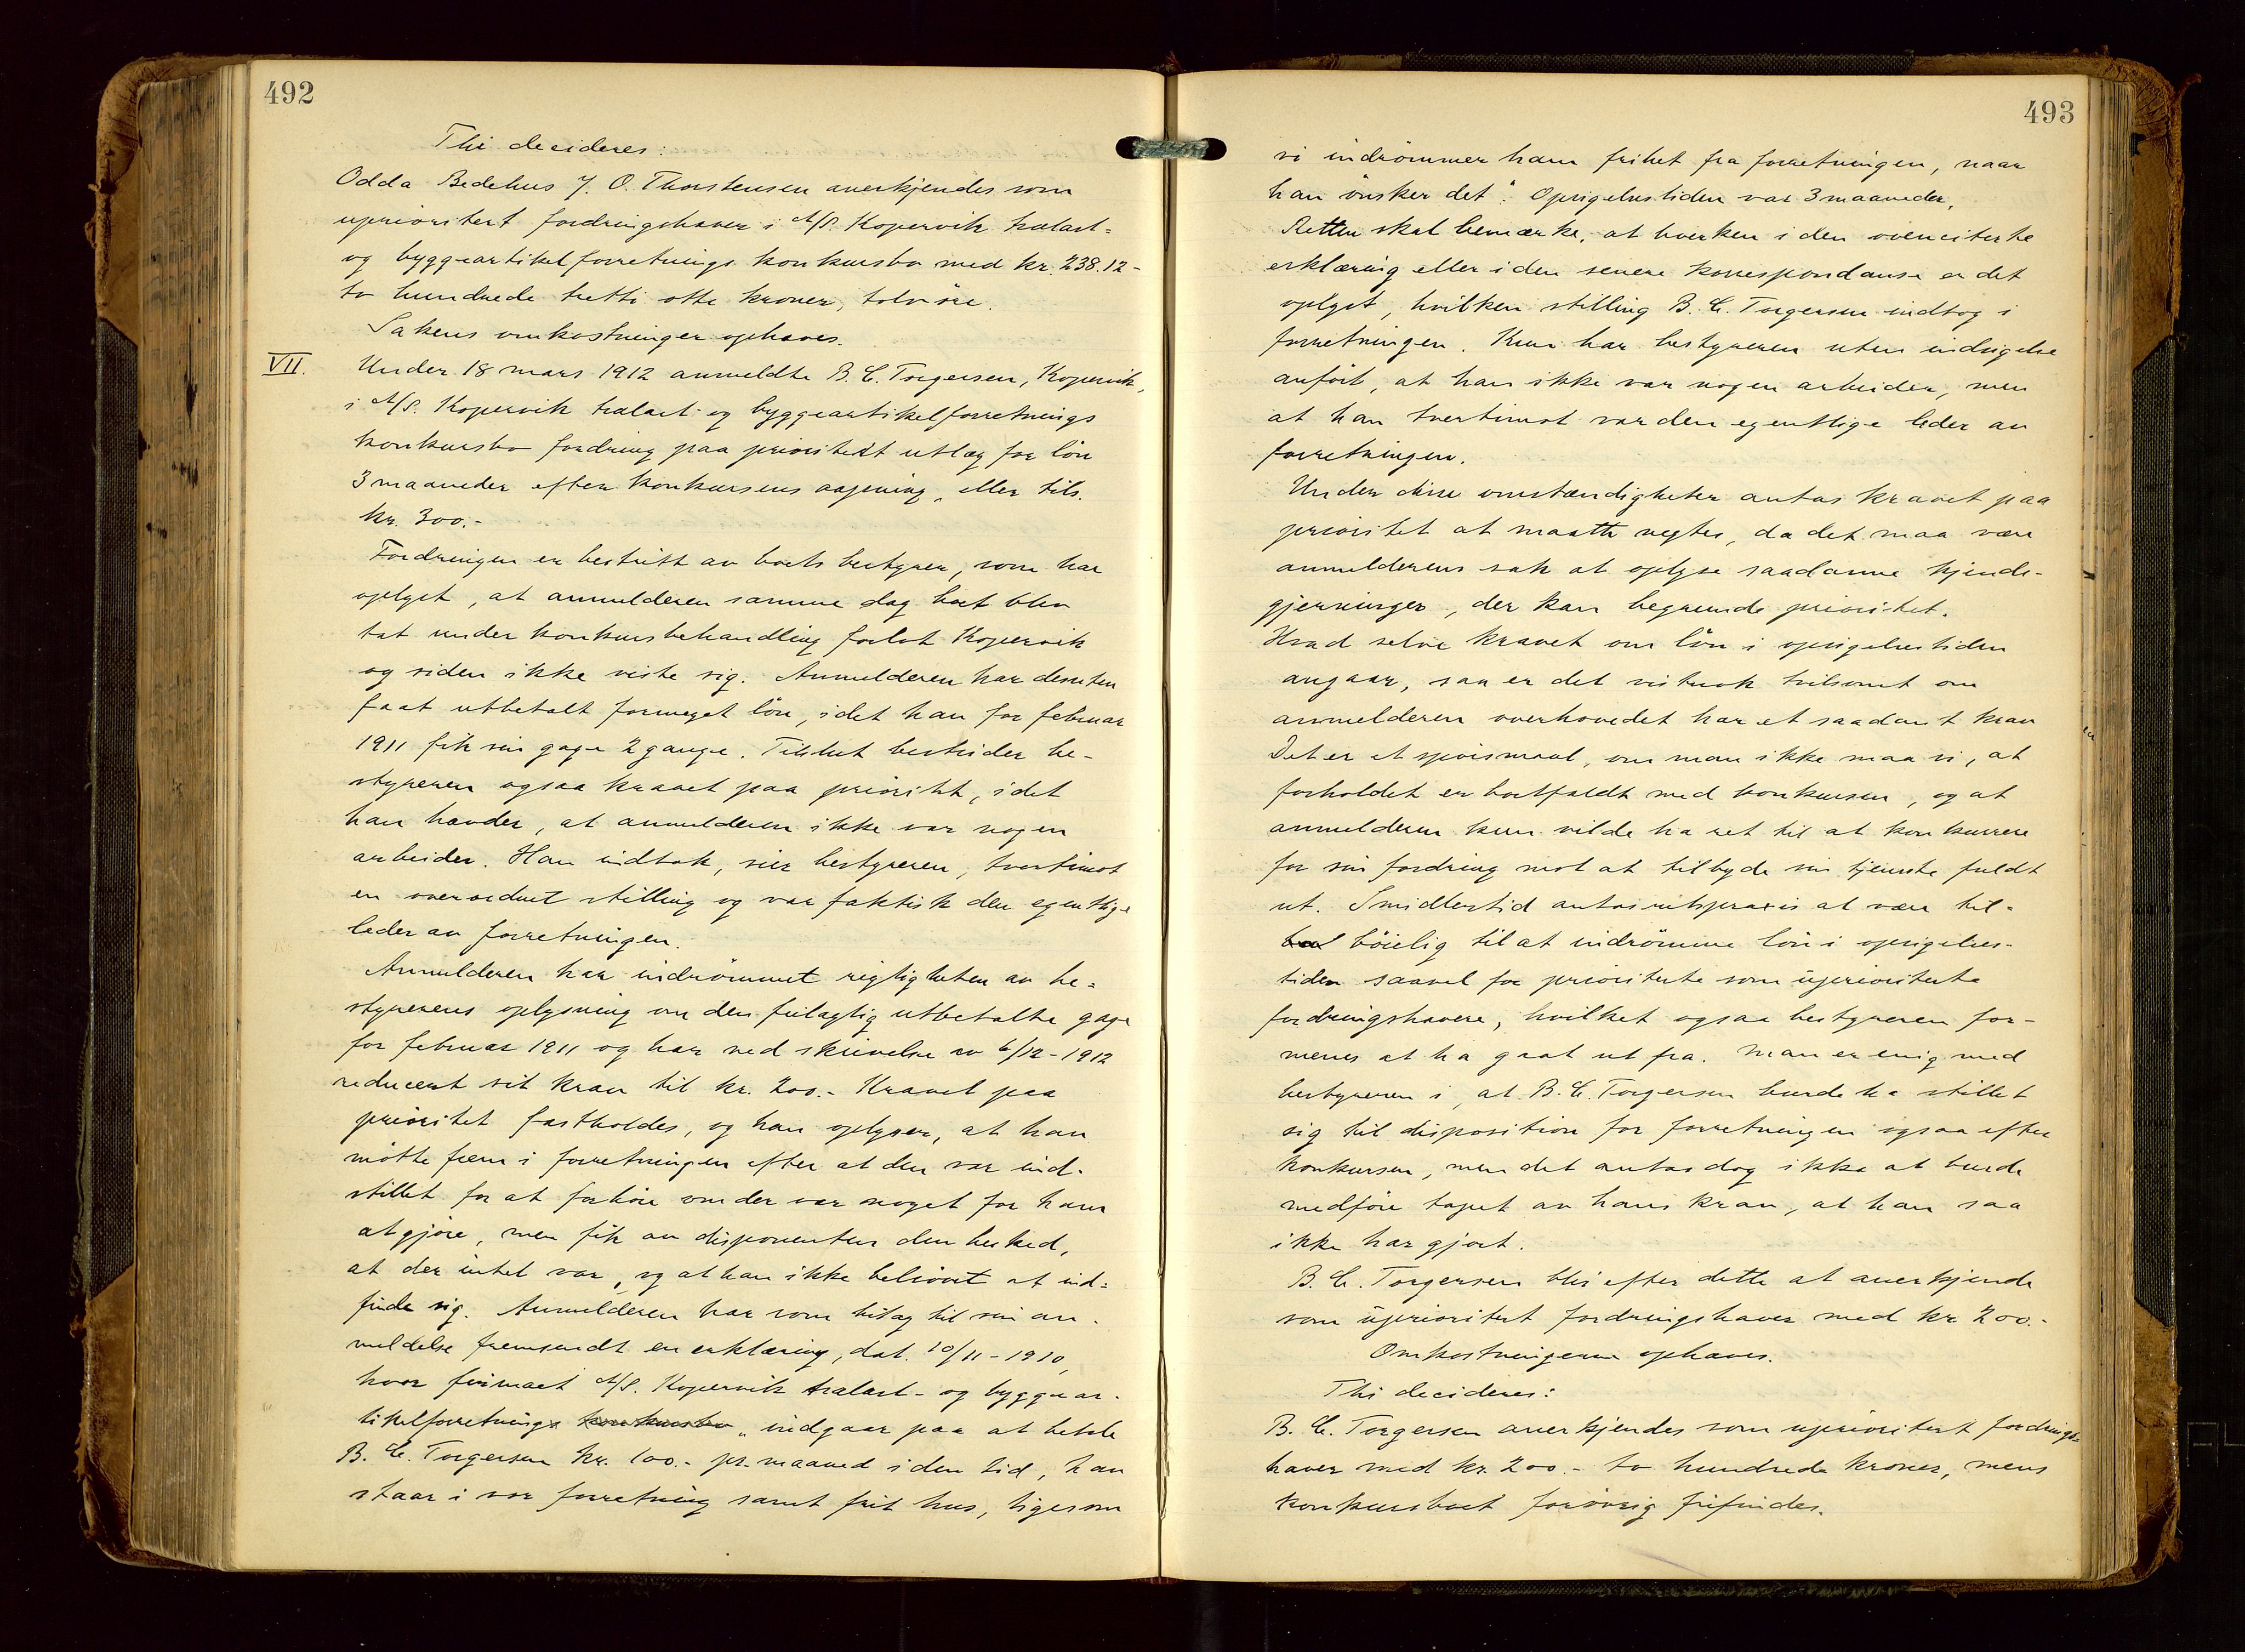 492
Thi decideres:
Odda Bedehus J. O. Thorstensen anerkjendes som
uprioritert fordringshaver i A/S. Kopervik trælast-
og byggeartikelforretnings konkursbo med kr. 238.12 -
to hundrede tretti otte kroner, tolv øre.
Sakens omkostninger ophæves.
VII. Under 18 mars 1912 anmeldte B. C. Torgersen, Kopervik,
i A/S. Kopervik trælast- og byggeartikelforretnings
konkursbo fordring paa prioritert utlæg for løn
3 maaneder efter konkursens aapning, eller tils.
kr. 300.-
Fordringen er bestritt av boets bestyrer, som har
oplyst, at anmelderen samme dag boet blev
tat under konkursbehandling forlot Kopervik
og siden ikke viste sig. Anmelderen har desuten
faat utbetalt formeget løn, idet han for februar
1911 fik sin gage 2 gange. Tilslut bestrider be-
styreren ogsaa kravet paa prioritet, idet
han hævder, at anmelderen ikke var nogen
arbeider. Han indtok, sier bestyreren, tvertimot
en overordnet stilling og var faktisk den egentlige
leder av forretningen.
Anmelderen har indrømmet rigtigheten av be-
styrerens oplysning om den feilagtig utbetalte gage
for februar 1911 og har ved skrivelse av 6/12-1912
reducert sit krav til kr. 200.- Kravet paa
prioritet fastholdes, og han oplyser, at han
møtte frem i forretningen efter at den var ind-
stillet for at forhøre om der var noget for ham
at gjøre, men fik av disponenten den besked,
at der intet var, og at han ikke behøvet at ind-
finde sig. Anmelderen har som bilag til sin an-
meldelse fremsendt en erklæring, dat. 10/11-1910,
hvor firmaet A/S. Kopervik trælast- og byggear-
tikelforretnings konkursbo "indgaar paa at betale
B. C. Torgersen kr. 100.- pr. maaned i den tid, han
staar i vor forretning samt frit hus, ligesom
493
vi indrømmer ham frihet fra forretningen, naar
han ønsker det". Opsigelsestiden var 3 maaneder.
Retten skal bemærke, at hverken i den ovenciterte
erklæring eller i den senere korrespondanse er det
oplyst, hvilken stilling B. C. Torgersen indtog i
forretningen. Kun har bestyreren uten indsigelse
anført, at han ikke var nogen arbeider, men
at han tvertimot var den egentlige leder av
forretningen.
Under disse omstændigheter antas kravet paa
prioritet at maatte negtes, da det maa være
anmelderens sak at oplyse saadanne kjends-
gjerninger, der kan begrunde prioritet.
Hvad selve kravet om løn i opsigelsestiden
angaar, saa er det vistnok tvilsomt om
anmelderen overhovedet har et saadant krav
Det er et spørsmaal, om man ikke maa si, at
forholdet er bortfaldt med konkursen, og at
anmelderen kun vilde ha ret til at konkurrere
for sin fordring mot at tilbyde sin tjeneste fuldt
ut. Imidlertid antas retspraxis at være til-
bøielig til at indrømme løn i opsigelses-
tiden saavel for prioriterte som uprioriterte
fordringshavere, hvilket ogsaa bestyreren for-
menes at ha gaat ut fra. Man er enig med
bestyreren i, at B. C. Torgersen burde ha stillet
sig til disposition for forretningen ogsaa efter
konkursen, men det antas dog ikke at burde
medføre tapet av hans krav, at han saa
ikke har gjort.
B. C. Torgersen blir efter dette at anerkjende
som uprioritert fordringshaver med kr 200.-
Omkostningerne ophæves.
Thi decideres:
B. C. Torgersen anerkjendes som uprioritert fordrings-
haver med kr. 200.- to hundrede kroner, mens
konkursboet forøvrig frifindes.